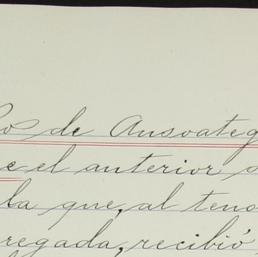 de Ansoateg
e el anterior
la que, al teno
regada, recibió